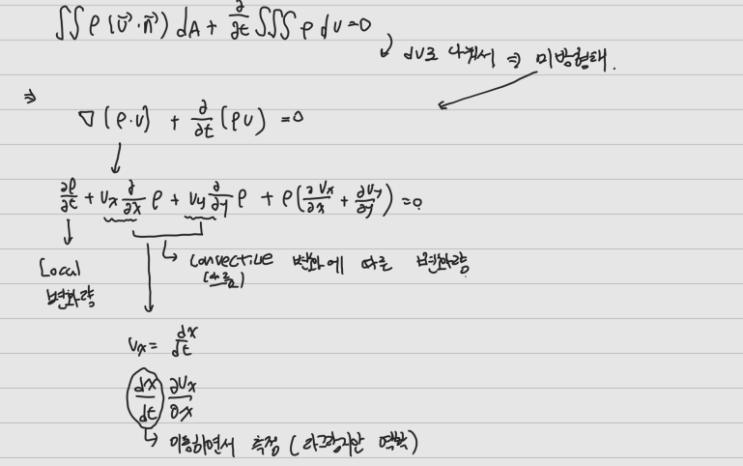 ∬ρ(v⃗·n⃗)dA + ∂/∂t ∭ρ dv=0
dv로 나눠서 ⇒ 미방형태.
⇒ ∇(ρ·v) + ∂/∂t(ρv) =0
∂ρ/∂t + Vx ∂/∂x ρ + Vy ∂/∂y ρ + ρ(∂Vx/∂x + ∂Vy/∂y) =0
Local 변화량
Convective 변화에 따른 변화량
Vx = dx/dt
dx/dt ∂Vx/∂x
이동하면서 측정 (라그랑지안 역학)